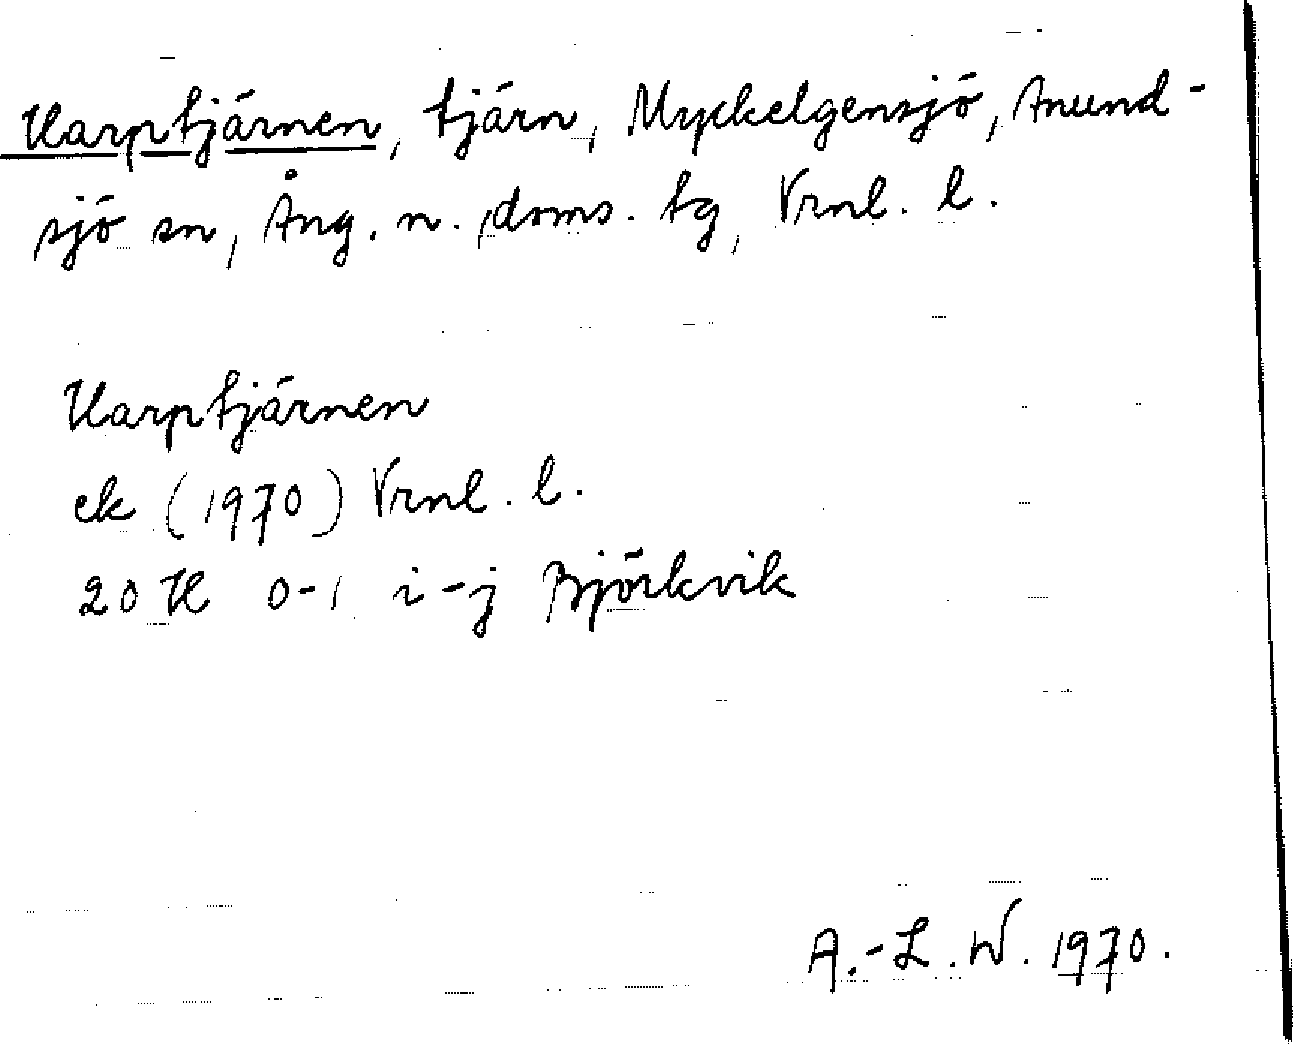 Karptjärnen, tjärn, Myckelgensjö, Anund-
sjö sn, Ång. n. doms. tg, Vrnl. l.
Karptjärnen
ek (1970) Vrnl. l.
20 H 0-1 i-j Björkvik
A.-L. W. 1970.